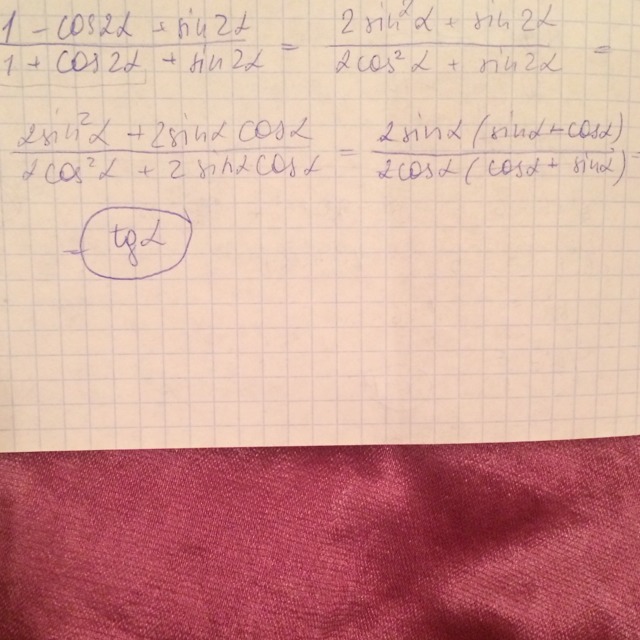 (1 - cos2α + sin2α)/(1 + cos2α + sin2α) = (2sin²α + sin2α)/(2cos²α + sin2α) =
(2sin²α + 2sinα cosα)/(2cos²α + 2sinα cosα) = (2sinα(sinα+cosα))/(2cosα(cosα+sinα)) =
= tgα